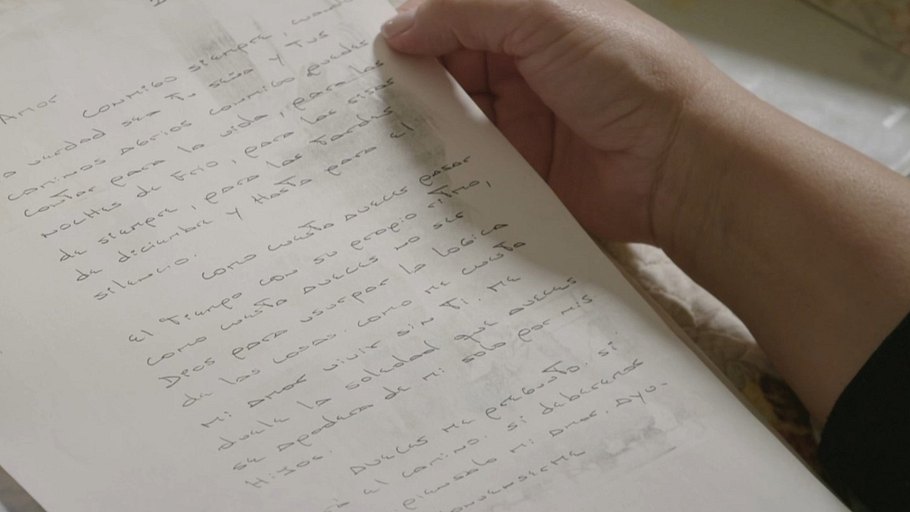 Amor
conmigo siempre,
verdad sea tu seña y tus
caminos abrios conmigo puedes
contar para la vida, para las
noches de frio, para las risas
de siempre, para las tardes
de diciembre y hasta para el
silencio.
como cuesta aveces pasar
el tiempo con su propio ritmo,
como cuesta aveces no ser
Dios para usurpar la logica
de las cosas. como me cuesta
mi amor vivir sin ti. me
duele la soledad que aveces
se apodera de mi solo por mis
Hijos.
aveces me pregunto. si
el camino. si deberemos
pienselo mi amor. ayu-